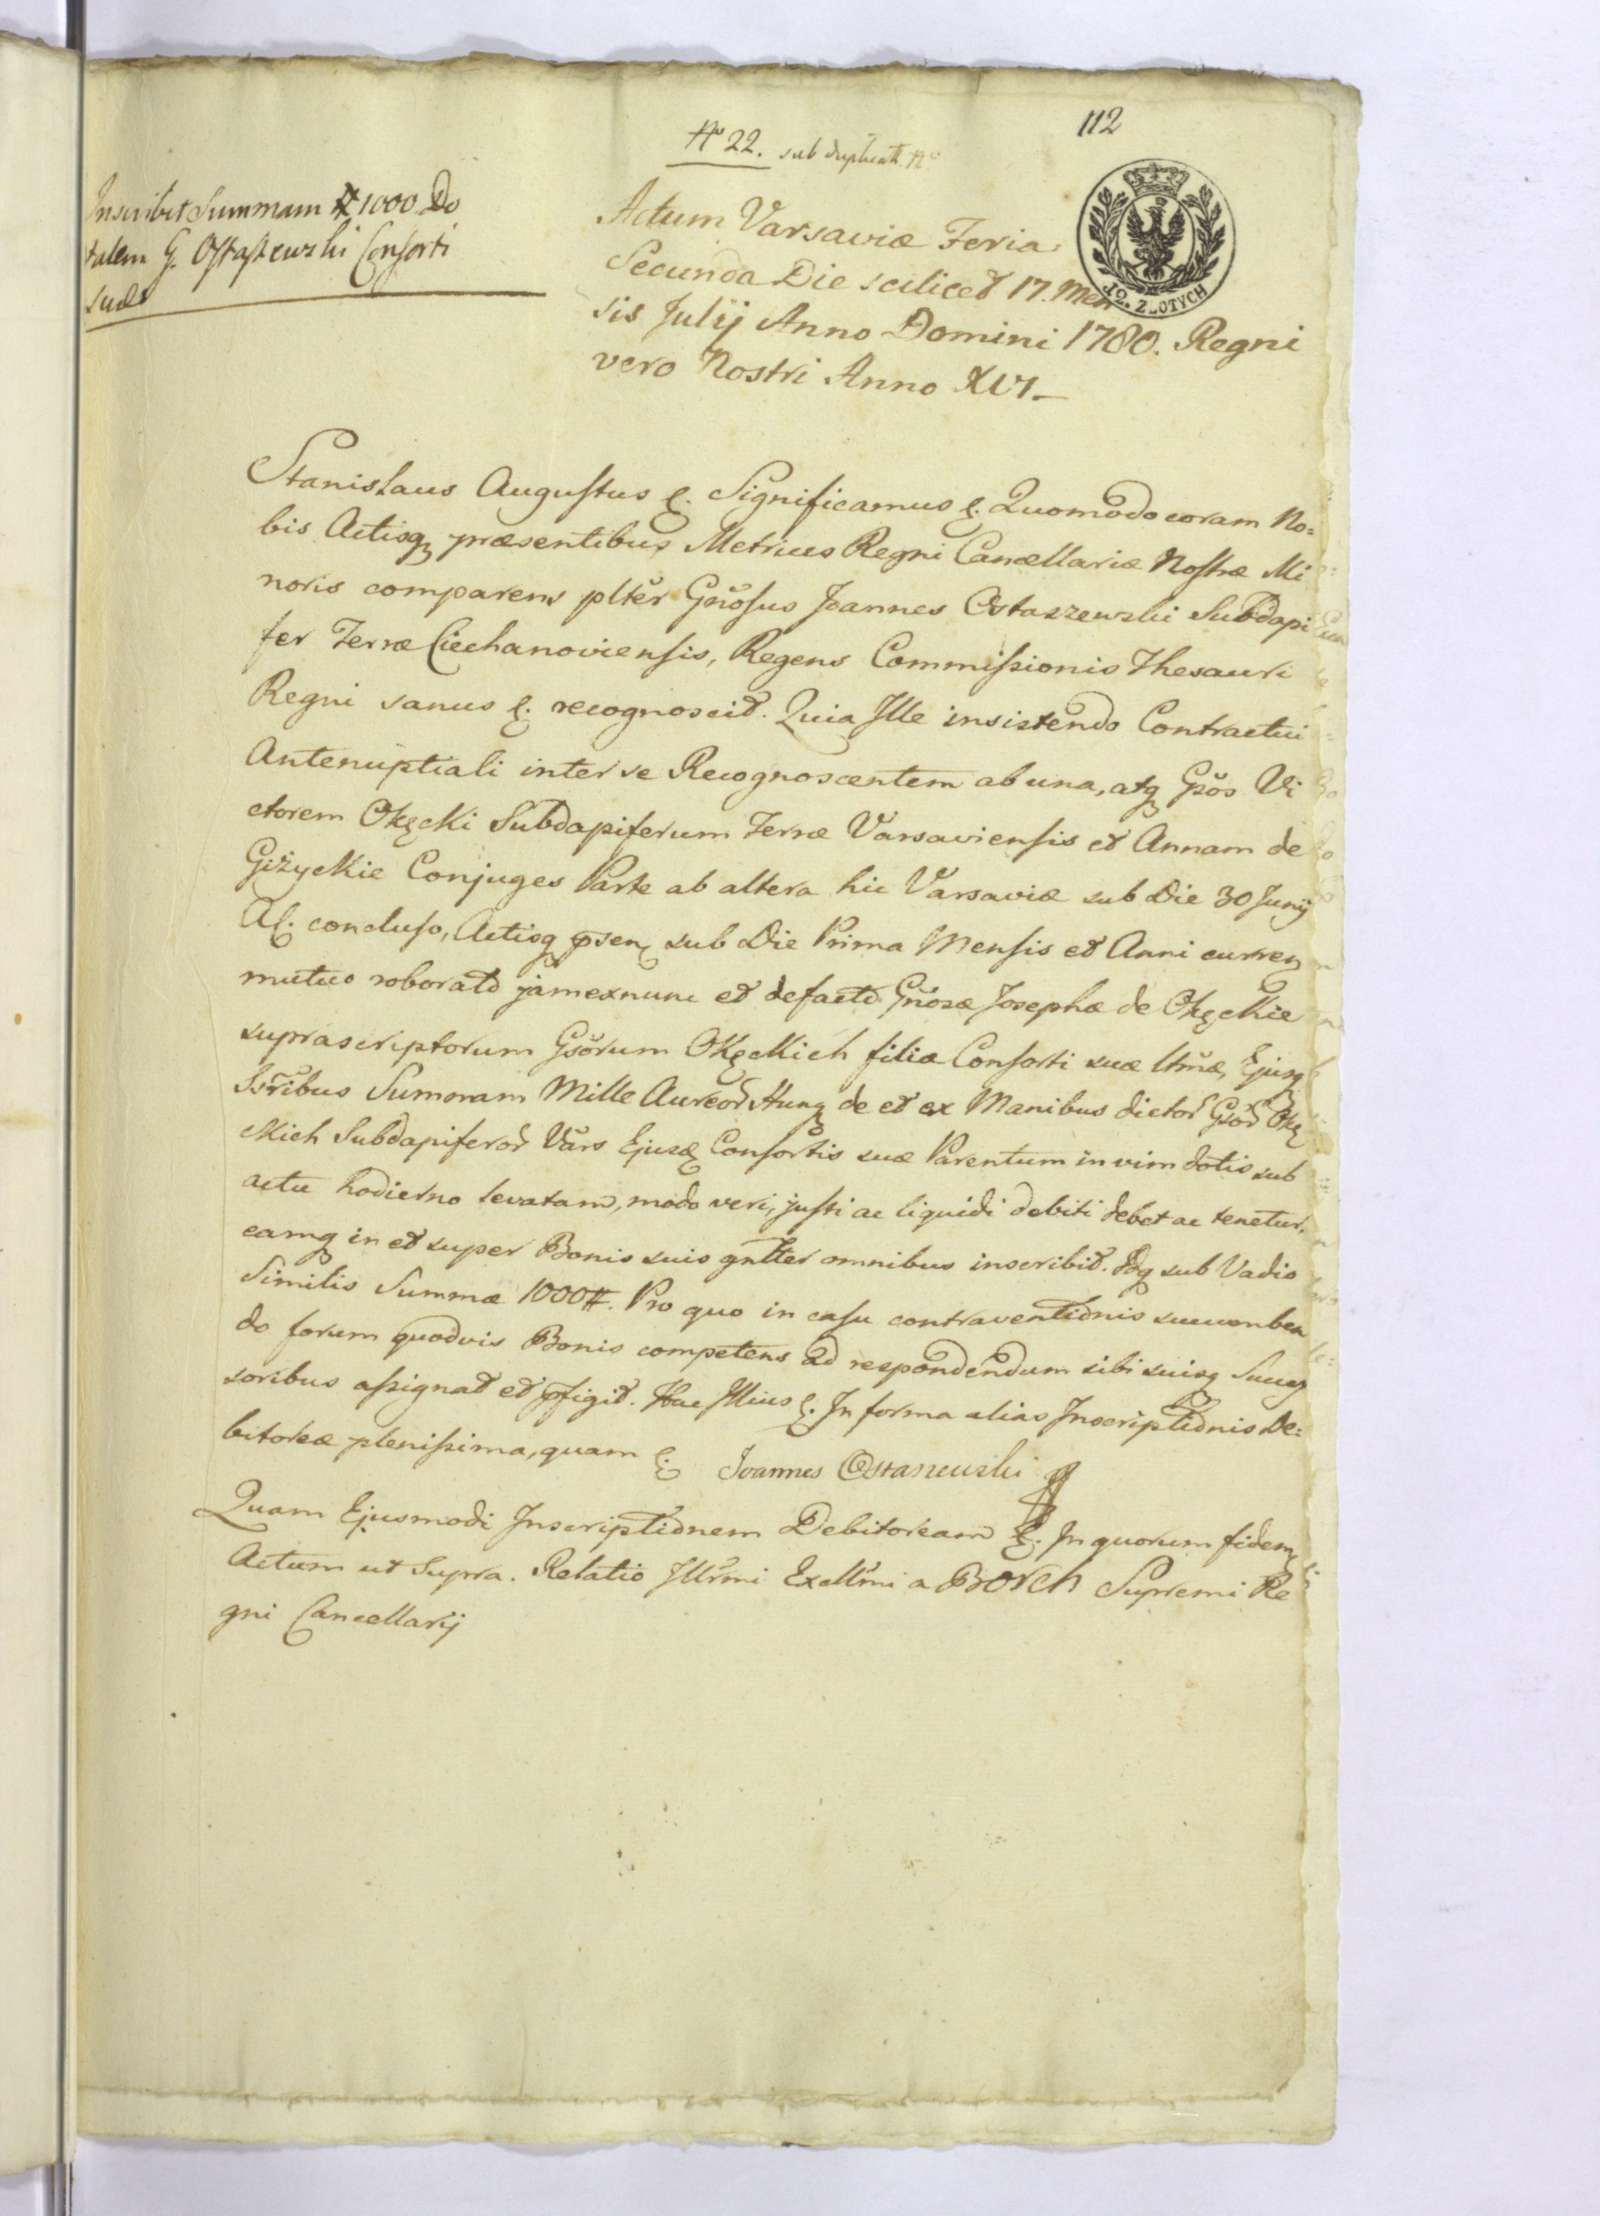 112
No 22. sub duplicati No
Inscribit Summam # 1000 Do
talem G. Ostaszewski Consorti
suæ
12. ZŁOTYCH
Actum Varsaviæ Feria
Secunda Die scilicet 17. Men
sis Julij Anno Domini 1780. Regni
vero Nostri Anno XVI
Stanislaus Augustus &. Significamus &. Quomodo coram No=
bis Actisq præsentibus Metrices Regni Cancellariæ Nostræ Mi
noris comparens plter Gnosus Joannes Ostaszewski Subdapi
fer Terræ Ciechanoviensis, Regens Commissionis Thesauri
Regni sanus &. recognoscit. Quia Ille insistendo Contractui
Antenuptiali inter se Recognoscentem ab una, atq Gsos Vi
ctorem Okęcki Subdapiferum Terræ Varsaviensis et Annam de
Giżyckie Conjuges Parte ab altera hic Varsaviæ sub Die 30 Junij
A. c. concluso, Actisq psen sub Die Prima Mensis et Anni curren
mutuo roborato jam ex nunc et de facto Gnosæ Josephæ de Okęckie
suprascriptorum Gsorum Okęckich filiæ Consorti suæ ltmæ, Ejusq
Ssribus Summam Mille Aureor Hung de et ex Manibus dictor Gsor Okę
ckich Subdapiferor Vars Ejusd Consortis suæ Parentum in vim dotis sub
actu hodierno levatam, modo veri, justi ac liquidi debiti debet ac tenetur,
eamq in et super Bonis suis gnlter omnibus inscribit. Idq sub Vadio
Similis Summæ 1000 #. Pro quo in casu contraventionis succumben
do forum quodvis Bonis competens ad respondendum sibi suisq Succes
soribus assignat et pfigit. Hac Illius &. In forma alias Inscriptionis De=
bitoreæ plenissima, quam &
Joannes Ostaszewski
Quam Ejusmodi Inscriptionem Debitoream &. In quorum fidem &
Actum ut Supra. Relatio Illrmi Excllmi a Borch Supremi Re
gni Cancellarij